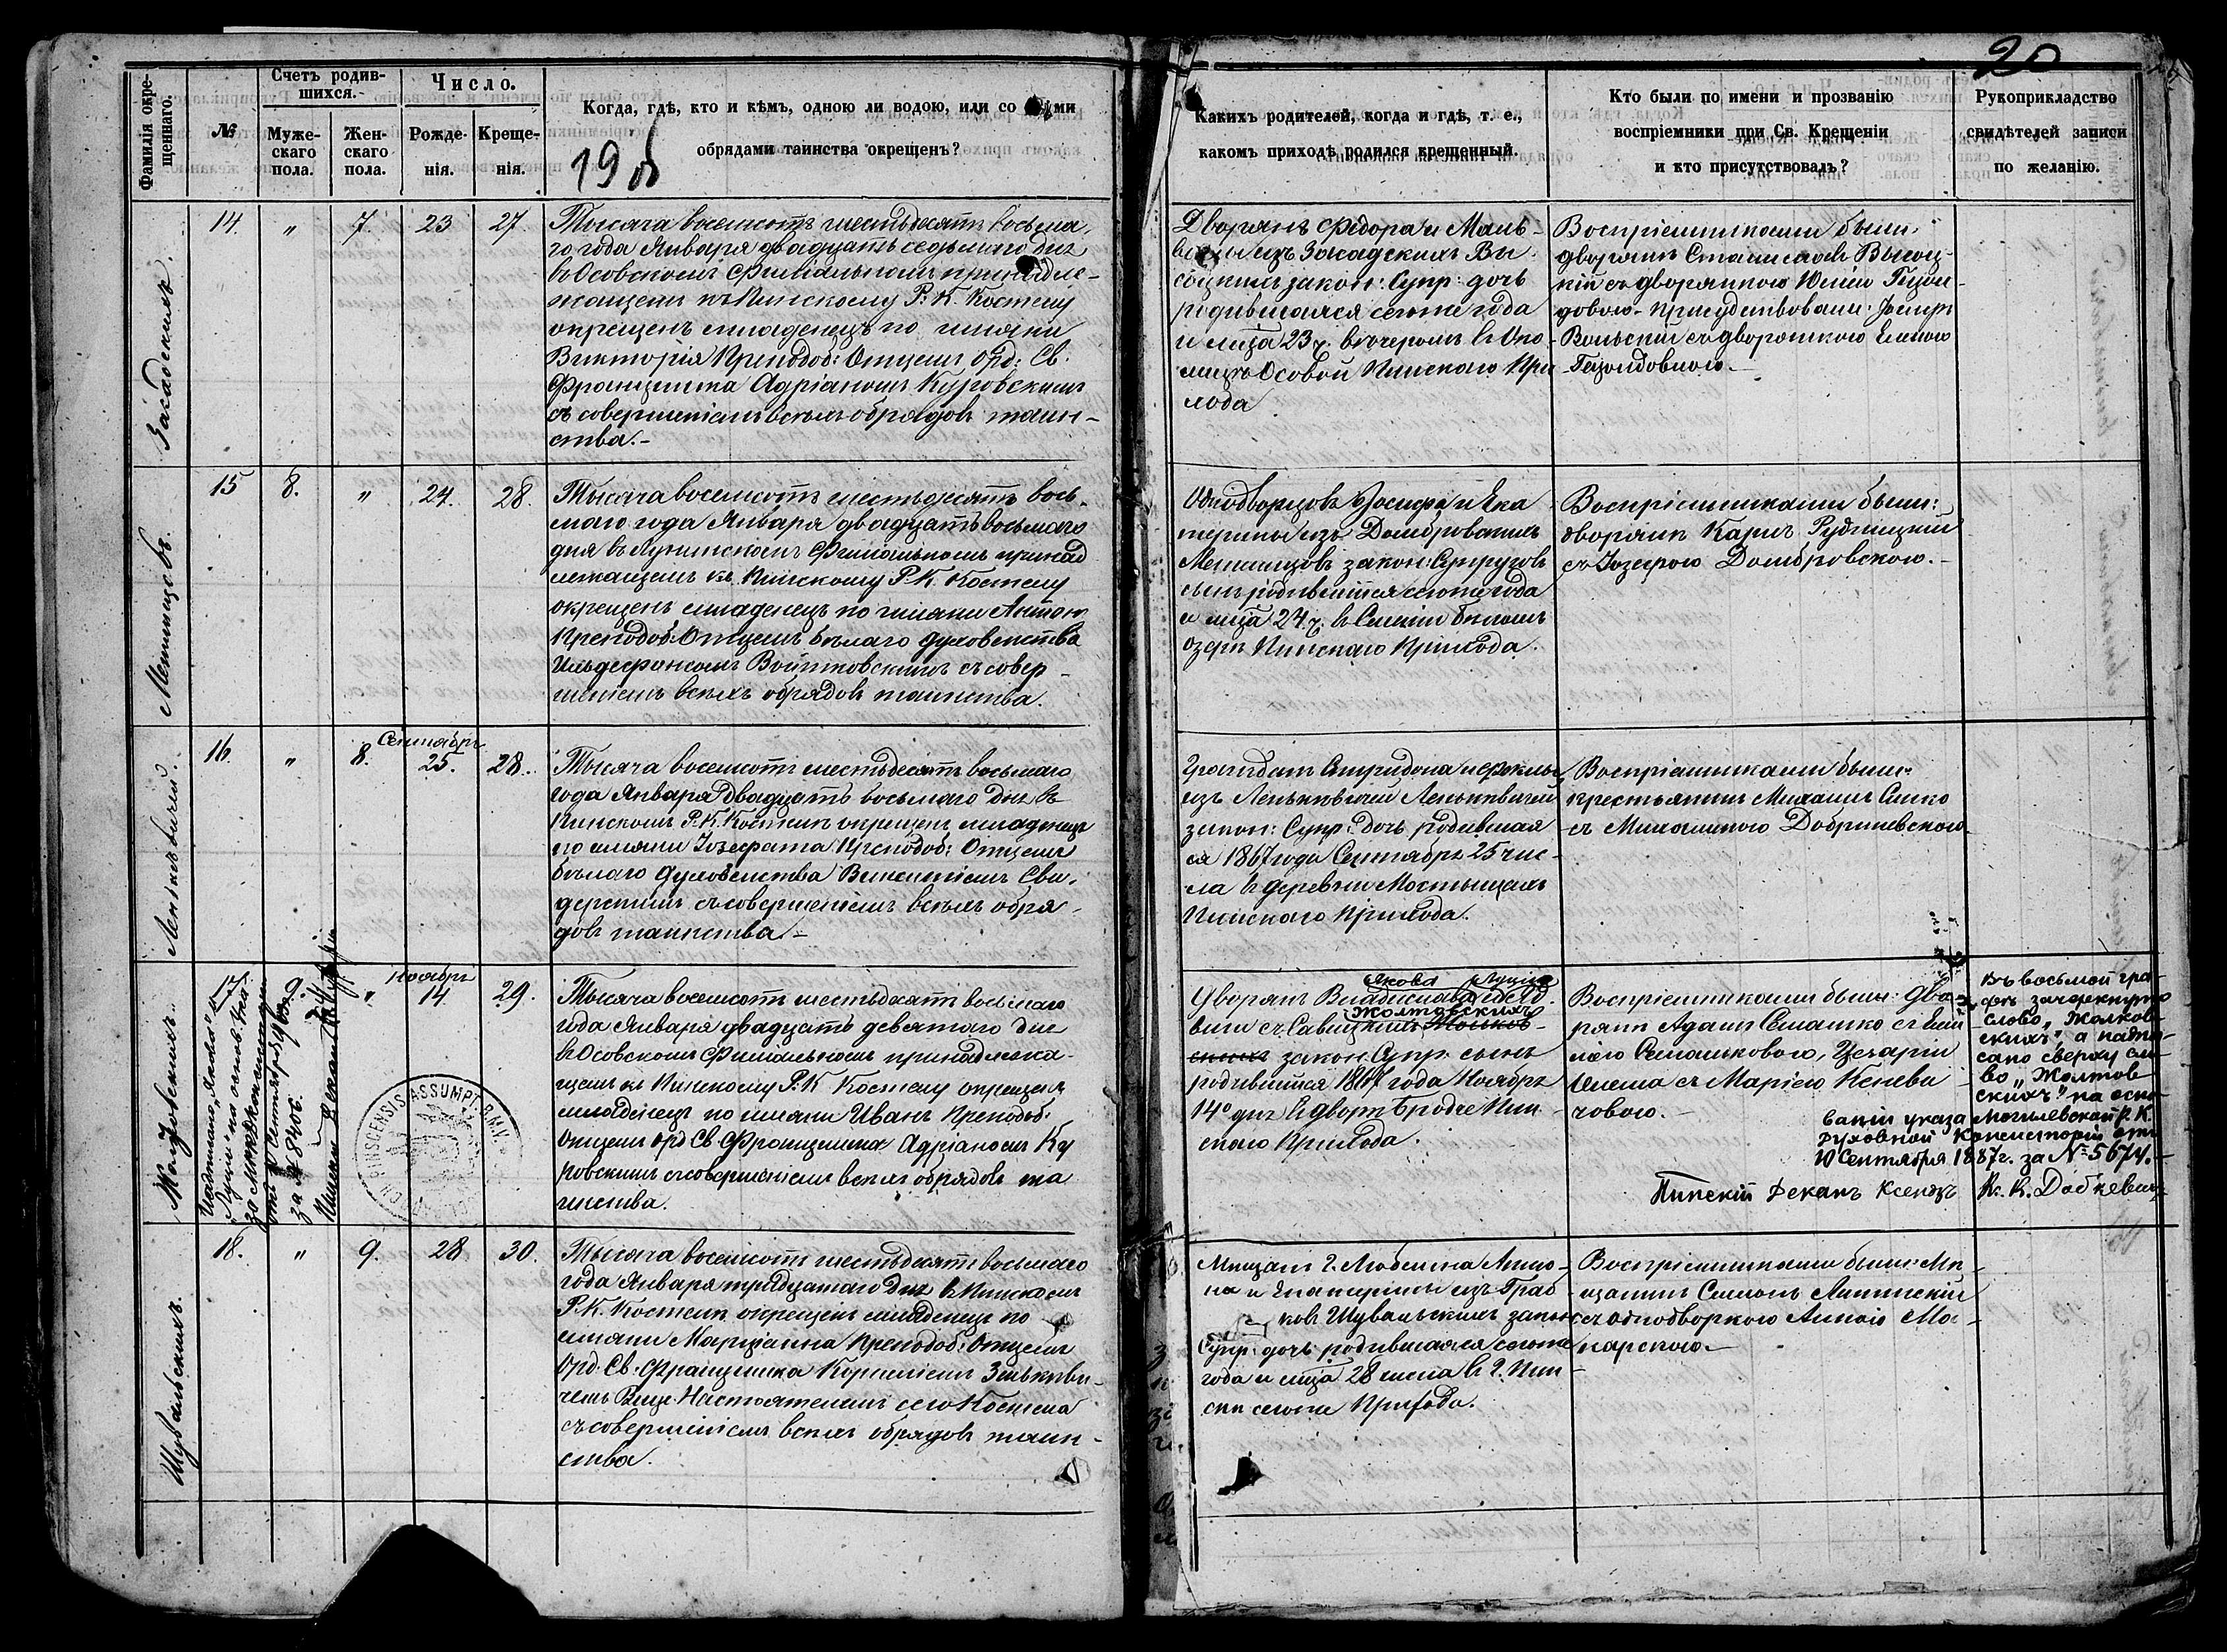 20
Фамилія окре-
щеннаго.
№
Счетъ родив-
шихся.
Муже-
скаго
пола.
Жен-
скаго
пола.
Число.
Рожде-
нія.
Креще-
нія.
Когда, гдѣ, кто и кѣмъ, одною ли водою, или со всѣми
обрядами таинства окрещенъ?
19 об
Какихъ родителей, когда и гдѣ, т. е.,
какомъ приходѣ родился крещенный.
Кто были по имени и прозванію
воспріемники при Св. Крещеніи
и кто присутствовалъ?
Рукоприкладство
свидѣтелей записи
по желанію.
14.
"
7.
23
27.
Тысяча восемсотъ шестьдесятъ восьма,
го года Января двадцать седьмаго дня
въ Осовскомъ Филіальномъ принадле-
жащемъ къ Пинскому Р: К. Костелу
окрещенъ младенецъ по имяни
Викторія Преподоб: Отцемъ Орд: Св.
Францишка Адріаномъ Куровскимъ
съ совершеніемъ всѣхъ обрядовъ таин-
ства.-
Дворянъ Федора и Маль-
изъ Засадскихъ Вы-
соцкихъ закон: Супр: дочь
родившаяся сегоже года
и мѣца 23 ч. вечеромъ в Око-
лицѣ Осовой Пинскаго При
хода
Воспріемниками были:
дворянин Станиславъ Высоц-
кій съ дворянкою Юліею
довою- присудствовали: Іосифъ
Вольскій съ дворянкою Еленою
15
8.
"
24.
28.
Менжицовъ.
Тысяча восемсотъ шестьдесятъ вось-
маго года Января двадцать восьмаго
дня въ Лунинскомъ Филіальномъ принад
лежащемъ къ Пинскому Р.К. Костелу
окрещенъ младенецъ по имяни Антон
Преподоб: Отцемъ бѣлаго духовенства
Ильдефонсомъ Войтковскимъ съ совер-
шеніемъ всѣхъ обрядовъ таинства.
Однодворцовъ Іосифа и Ека
терины изъ Домбровскихъ
закон: Супруговъ
сынъ родившійся сегоже года
и мѣца 24. ч. в Имѣніи Бѣломъ
озерѣ Пинскаго Прихода.
Воспріемниками были:
дворянин Карлъ Рудницкій
съ Іозефою Домбровскою.-
16.
"
8.
Сентябрь
25.
28.
Тысяча восемсотъ шестьдесятъ восьмаго
года Января Двадцать восьмаго дня въ
Пинскомъ Р.К. Костелѣ окрещенъ младенецъ
по имяни Іозефата Преподоб: Отцемъ
бѣлаго духовенства Викентіемъ Сви-
дерскимъ съ совершеніемъ всѣхъ обря-
довъ таинства.-
Граждан Спиридона и Феклы
изъ Леньковичей Леньковичей
закон: Супр: дочь родившая
ся 1867 года Сентября 25 чис-
ла в деревни Мостыщахъ
Пинскаго Прихода.
Воспріемниками были:
крестьянин Михаилъ Симко
съ Михалиною Добриневскою
Жолтовскихъ.
17
9.
"
Ноябрь
14
29.
за № 8406.
ASSUMPT. B.M.V.
Тысяча восемсотъ шестьдесятъ восьмаго
года Января двадцать девятаго дня
в Осовскомъ Филіальномъ принадлежа-
щемъ къ Пинскому Р.К Костелу окрещен
младенецъ по имяни Иванъ Преподоб:
Отцемъ Орд Св. Францишка Адріаномъ Ку
ровскимъ съ совершеніемъ всѣхъ обрядовъ та
инства.
Якова Луціи
Дворян Владислава и Яд
Жолтовскихъ
виги съ Савицкихъ
закон: Супр: сынъ
родившійся 1867 года Ноября
14го дня в дворѣ Бродче Пин
скаго Прихода.
Воспріемниками были: Дво
рянин Адамъ Семашко съ Еми
ліею Семашковою, Цезарій
съ Маріею Кеневи
човою.-
Въ восьмой гра-
фѣ зачеркнуто
слово "Жолков
скихъ", а надпи
сано сверху сло
во "Жолтов
скихъ" на осно
ваніи указа Могилевской Р. К.
духовной Консисторіи отъ
10 Сентября 1887 г. за № 5674.-
Пинскій Деканъ Ксендзъ К. К. Добкевичъ
Шувальскихъ.
18.
"
9.
28
30.
Тысяча восемсотъ шестьдесятъ восьмаго
года Января тридцатаго Дня в Пинскомъ
Р.К. Костелѣ окрещенъ младенецъ по
имяни Марціанна Преподоб: Отцемъ
Орд. Св. Францишка Корнеліемъ Зенькеви-
чемъ Вице-Настоятелемъ сего Костела
съ совершеніемъ всѣхъ обрядовъ таин-
ства.
Мѣщан г. Любешена Анто-
на и Екатерины изъ Граб-
ковъ Шувальскихъ закон:
Супр: дочь родившаяся сегоже
года и мѣца 28 числа в г. Пин-
скѣ сегоже Прихода.
Воспріемниками были: Мѣ-
щанин Симонъ Липинскій
съ однодворкою Анною Мо-
нарскою.-